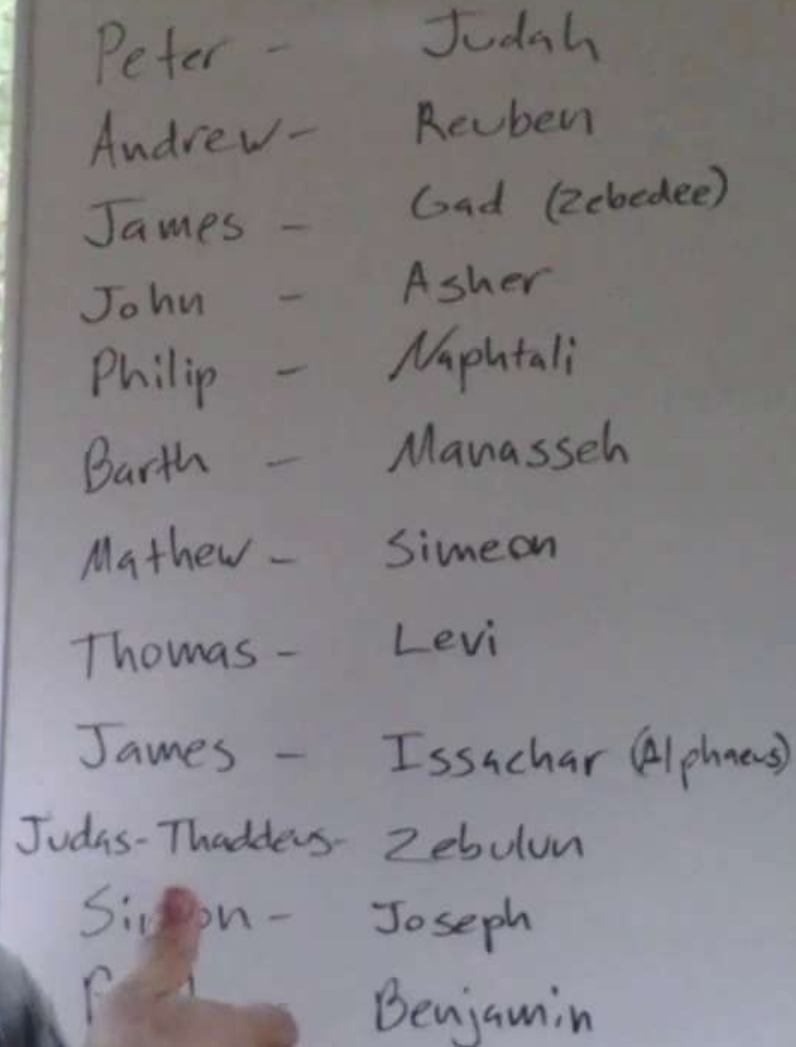 Peter - Judah
Andrew - Reuben
James - Gad (Zebedee)
John - Asher
Philip - Naphtali
Barth - Manasseh
Mathew - Simeon
Thomas - Levi
James - Issachar (Alphaeus)
Judas-Thaddeus- Zebulun
Simon - Joseph
Benjamin